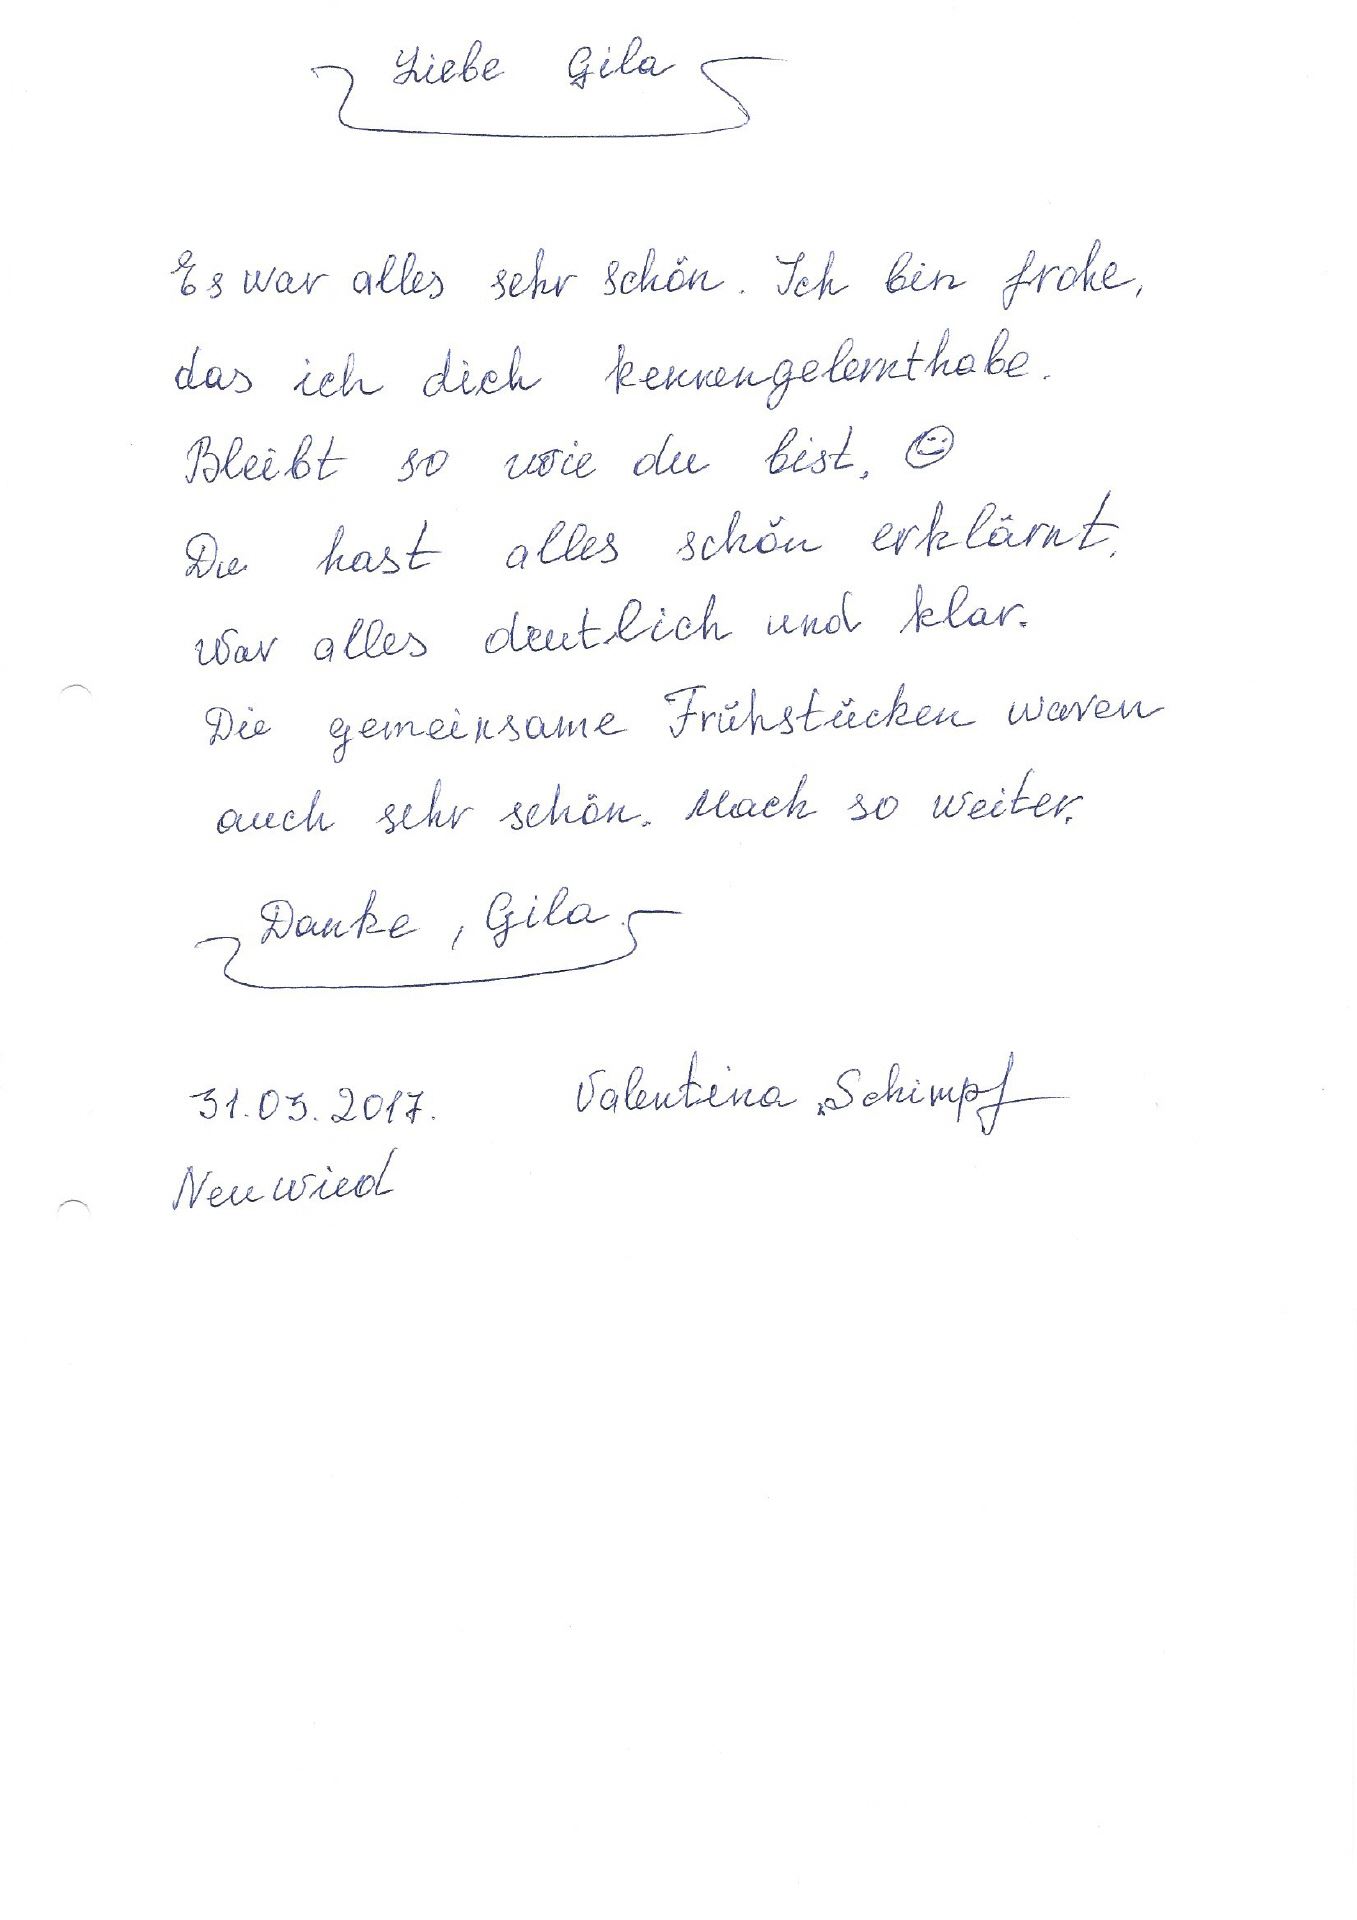 Liebe Gila
Es war alles sehr schön. Ich bin frohe,
das ich dich kennengelernthabe.
Bleibt so wie du bist. ☺
Du hast alles schön erklärnt.
War alles deutlich und klar.
Die gemeinsame Frühstücken waren
auch sehr schön. Mach so weiter.
Danke, Gila.
31.03.2017. Valentina Schimpf
Neuwied